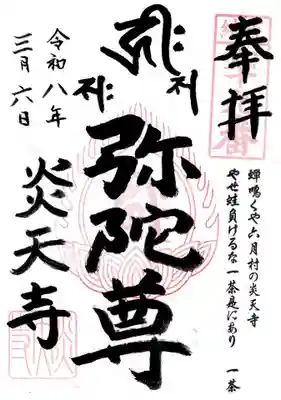 奉拝
蟬鳴くや六月村の炎天寺
やせ蛙負けるな一茶是にあり
一茶
弥陀尊
令和八年
三月六日
炎天寺